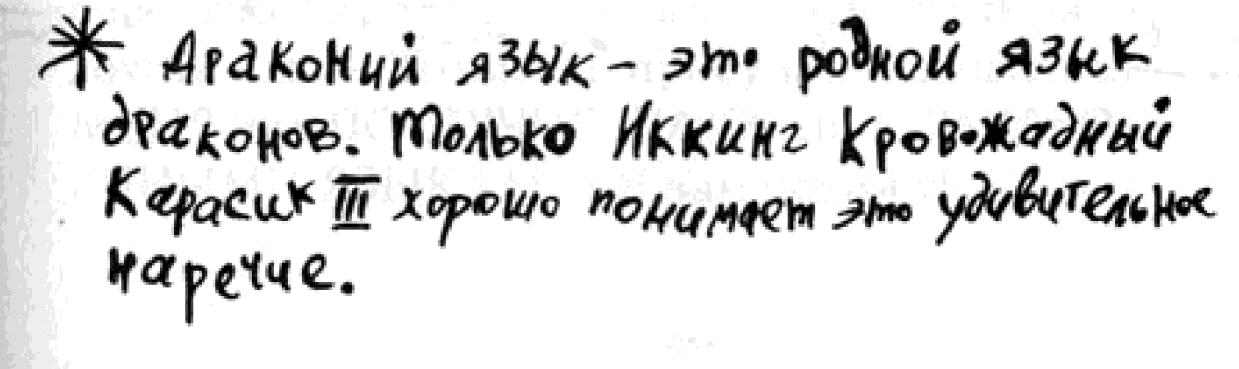 * Драконий язык – это родной язык
драконов. Только Иккинг Кровожадный
Карасик III хорошо понимает это удивительное
наречие.